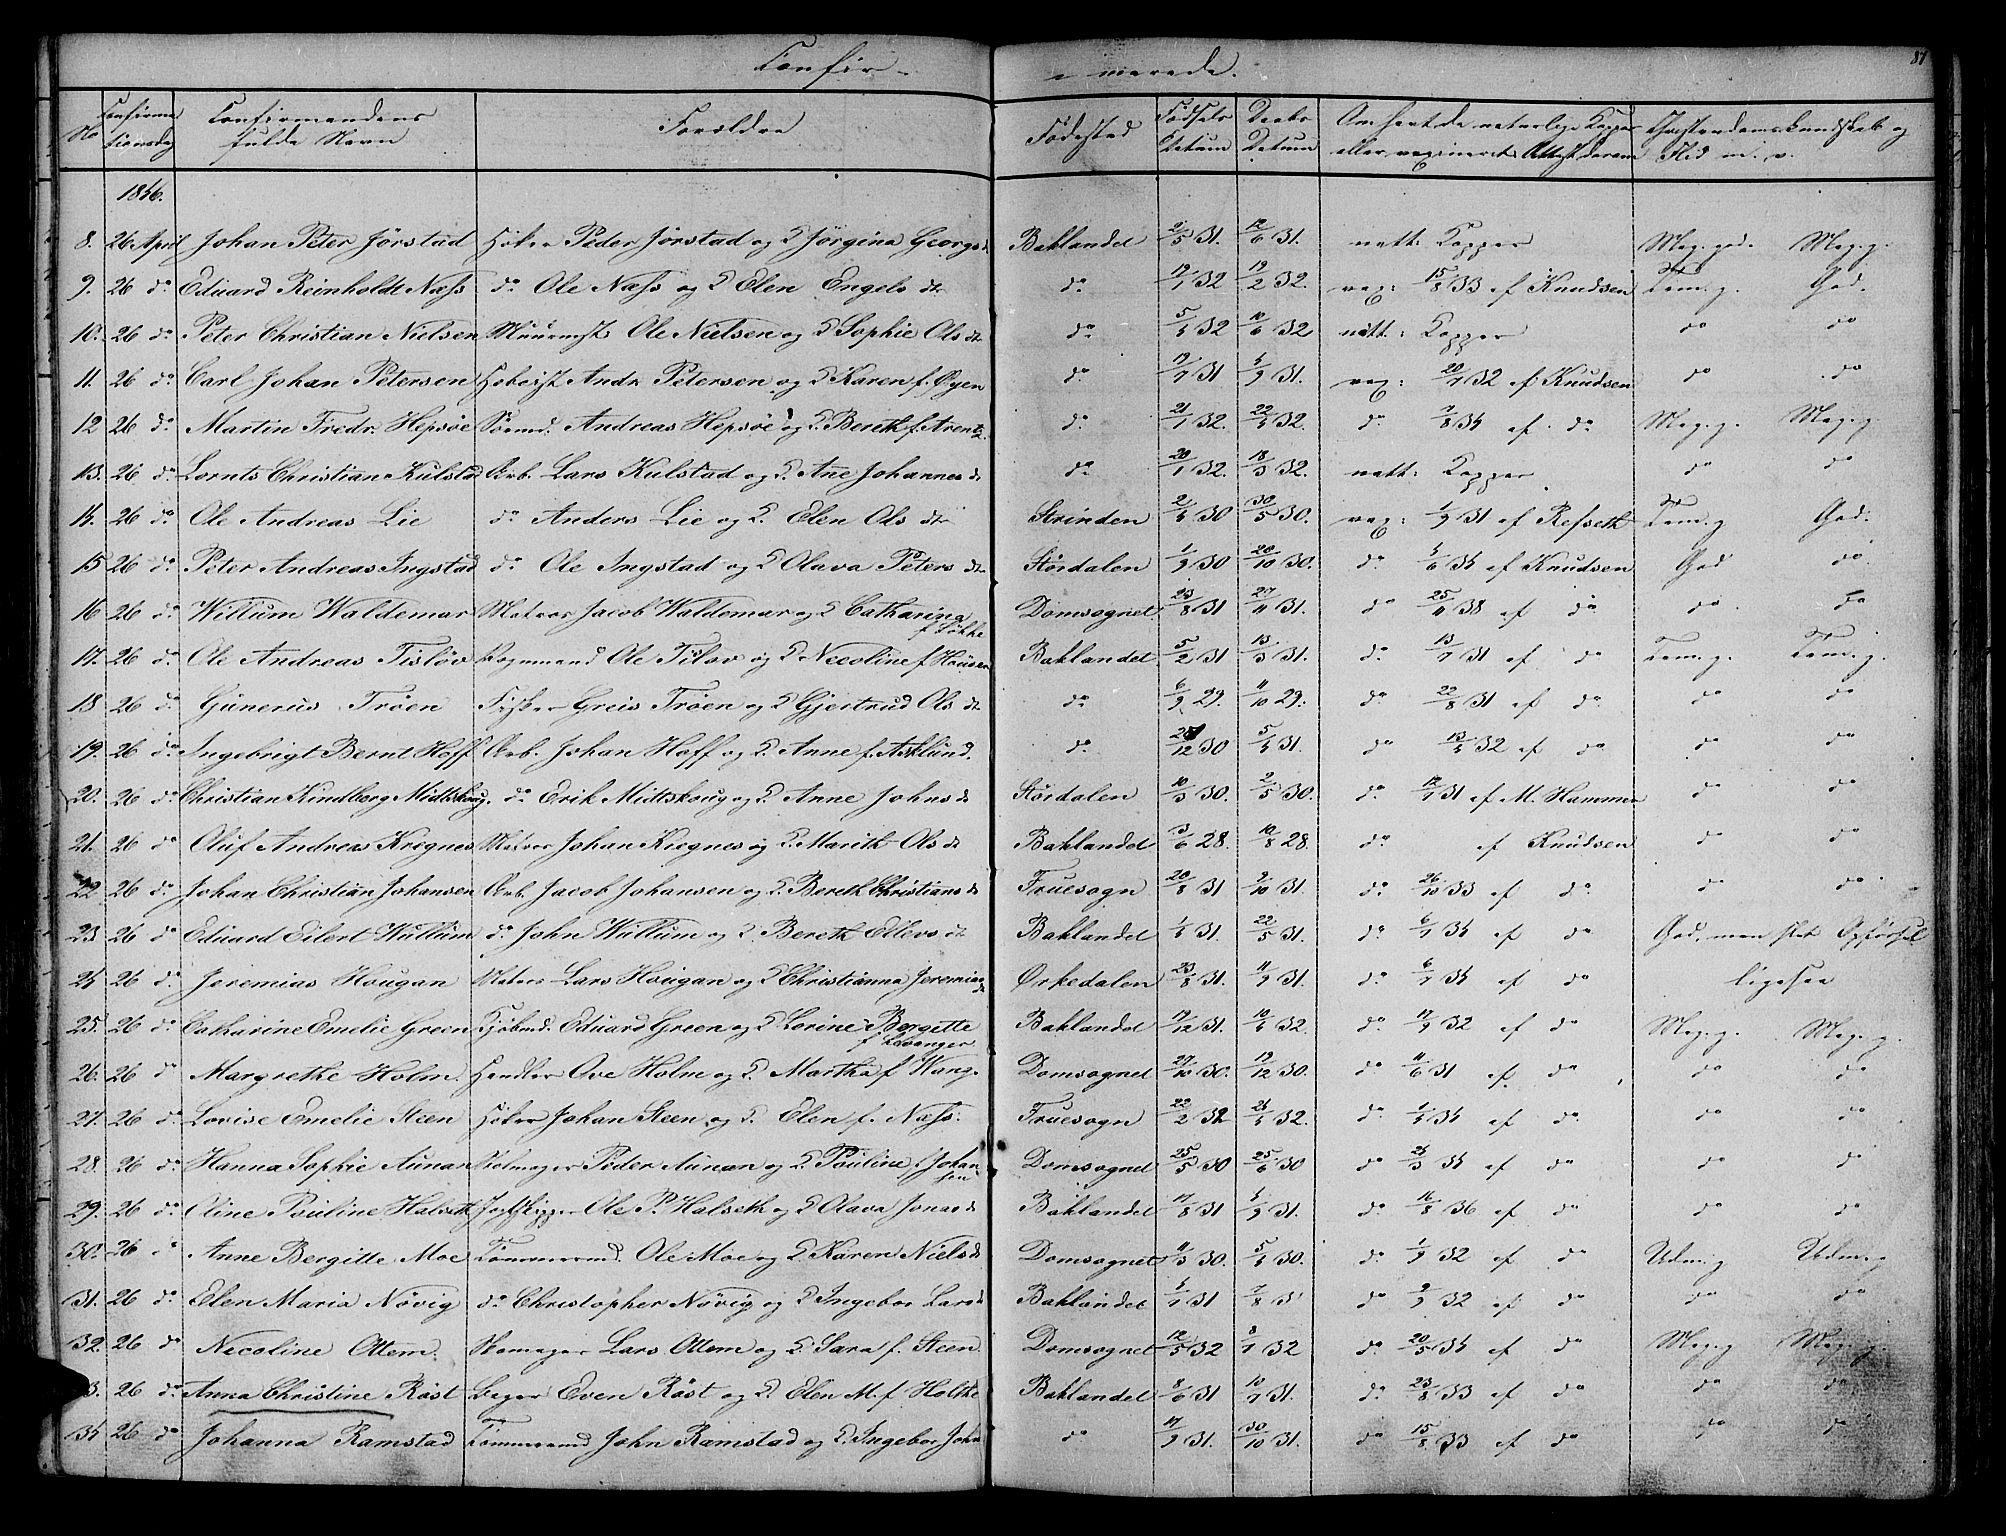 Confir- merede. 87
No Confirma- tionsdag Confirmandens fulde Navn Forældre Fødested Fødsels Datum Daabs Datum Om havt de naturlige Kopper eller vaxineret, Attest derom Christendomskundskab og Flid m. v.
1846.
8. 26 April Johan Peter Jörstad Höker Peder Jörstad og H. Jörgina Georgsd Baklandet 2/5 31. 12/6 31. natt: Kopper Meg. god. Meg. g.
9. 26 do Eduard Reinholdt Næss do Ole Næss og H. Elen Engelsdtr do 19/1 32 19/2 32. vax: 15/8 33 af Knudsen Tem. g. God.
10. 26 do Peter Christian Nielsen Muurmstr Ole Nielsen og H. Sophie Olsdtr do 5/4 32 10/6 32. natt: Kopper do do
11. 26 do Carl Johan Petersen Andr. Petersen og H. Karen f. Øyen do 19/7 31 4/9 31. vax: 20/7 32 af Knudsen do do
12 26 do Martin Fredr. Hepsöe Sömd. Andreas Hepsöe og H. Bereth f. Arentz do 21/1 32. 22/4 32. do 7/8 34 af do Meg. g. Meg. g.
13. 26 do Lornts Christian Kulstad Arb. Lars Kulstad og H. Ane Johannesd do 20/1 32. 18/3 32. natt: Kopper do do
14. 26 do Ole Andreas Lie do Anders Lie og H. Elen Olsdtr Strinden 2/4 30 30/5 30. vax: 1/9 31 af Refseth Tem. g God.
15 26 do Peter Andreas Ingstad do Ole Ingstad og H. Olava Petersdtr Stördalen 1/9 30 20/10 30. do 4/6 34 af Knudsen God do
16 26 do Willum Waldemar Matros Jacob Waldemar og H. Catharina f. Lökke Domsognet 23/8 31 27/11 31. do 25/11 38 af do do do
17. 26 do Ole Andreas Tislöv Vognmand Ole Tislov og H. Necoline f. Housen Baklandet 5/2 31 13/3 31. do 13/7 31 af do Tem. g. Tem. g.
18 26 do Gunerus Tröen Fisker Greis Tröen og H. Gjertrud Olsdtr do 6/9 29. 11/10 29. do 22/8 31 af do do do
19. 26 do Ingebrigt Bernt Hoff Arb. Johan Hoff og H. Anne f. Asklund. do /12 30 5/4 31. do 13/4 32 af do do do
20. 26 do Christian Kindberg Midtskoug. do Erik Midtskoug og H. Anne Johnsd Stördalen 10/3 30. 2/5 30. do 12/7 31 af M. Hammer do do
21. 26 do Oluf Andreas Krignes Matros Johan Kiegnes og H. Marith Olsdt Baklandet 3/6 28. 10/8 28. do af Knudsen do do
22 26 do Johan Christian Johansen Arb. Jacob Johansen og H. Bereth Christiansd Fruesogn 20/8 31 2/10 31. do 26/10 33 af do do do
23. 26 do Eduard Eilert Wullum do John Wullum og H. Bereth Ellevsdtr Baklandet 1/4 31. 22/5 31. do 6/7 34 af do God, men slet Opførsel
24 26 do Jeremias Hougan Matros Lars Hougan og H. Christianna Jeremiasd Ørkedalen 23/8 31. 11/9 31. do 6/7 34 af do ligesaa
25. 26 do Catharine Emelie Green Kjöbmd. Eduard Green og H. Lerine Bergitte f. Levanger Baklandet 19/12 31. 10/4 32. do 17/9 32 af do Meg. g. Meg. g.
26. 26 do Margrethe Holm. Handler Ove Holm og H. Martha f. Wang. Domsognet 27/10 30. 19/12 30. do 11/6 31 af do do do
27. 26 do Lovise Emelie Steen Höker Johan Steen og H. Elen f. Næss. Fruesogn 22/2 32 24/4 32. do 1/4 34 af do do do
28. 26 do Hanna Sophie Aunan Peder Aunan og H. Pouline f. Johansen Domsognet 25/5 30 25/6 30 do 24/3 34 af do do do
29. 26 do Oline Pouline Halseth Jagtskipper Ole P. Halseth og H. Olava Jonasd Baklandet 17/8 31 4/9 31. do 16/8 36 af do do do
30. 26 do Anne Bergitte Moe Tömmermd. Ole Moe og H. Karen Nielsd Domsognet 11/3 30. 5/4 30. do 1/9 32 af do Udm. g Udm. g
31. 26 do Elen Maria Növig do Christopher Növig og H. Ingebor Larsd Baklandet 4/7 31 7/8 31 do 2/9 32 af do do do
32. 26 do Necoline Ottem. Skomager Lars Ottem og H. Sara f. Steen Domsognet 12/5 32 8/7 32 do 20/5 34 af do Meg. g Meg. g.
3. 26 do Anna Christine Röst Bager Even Röst og H. Elen M. f. Holthe Baklandet 8/6 31 10/7 31. do 23/8 33 af do do do
34 26 do Johanna Ramstad Tömmermd John Ramstad og H. Ingebor John do 17/9 31. 30/10 31. do 15/8 33 af do do do